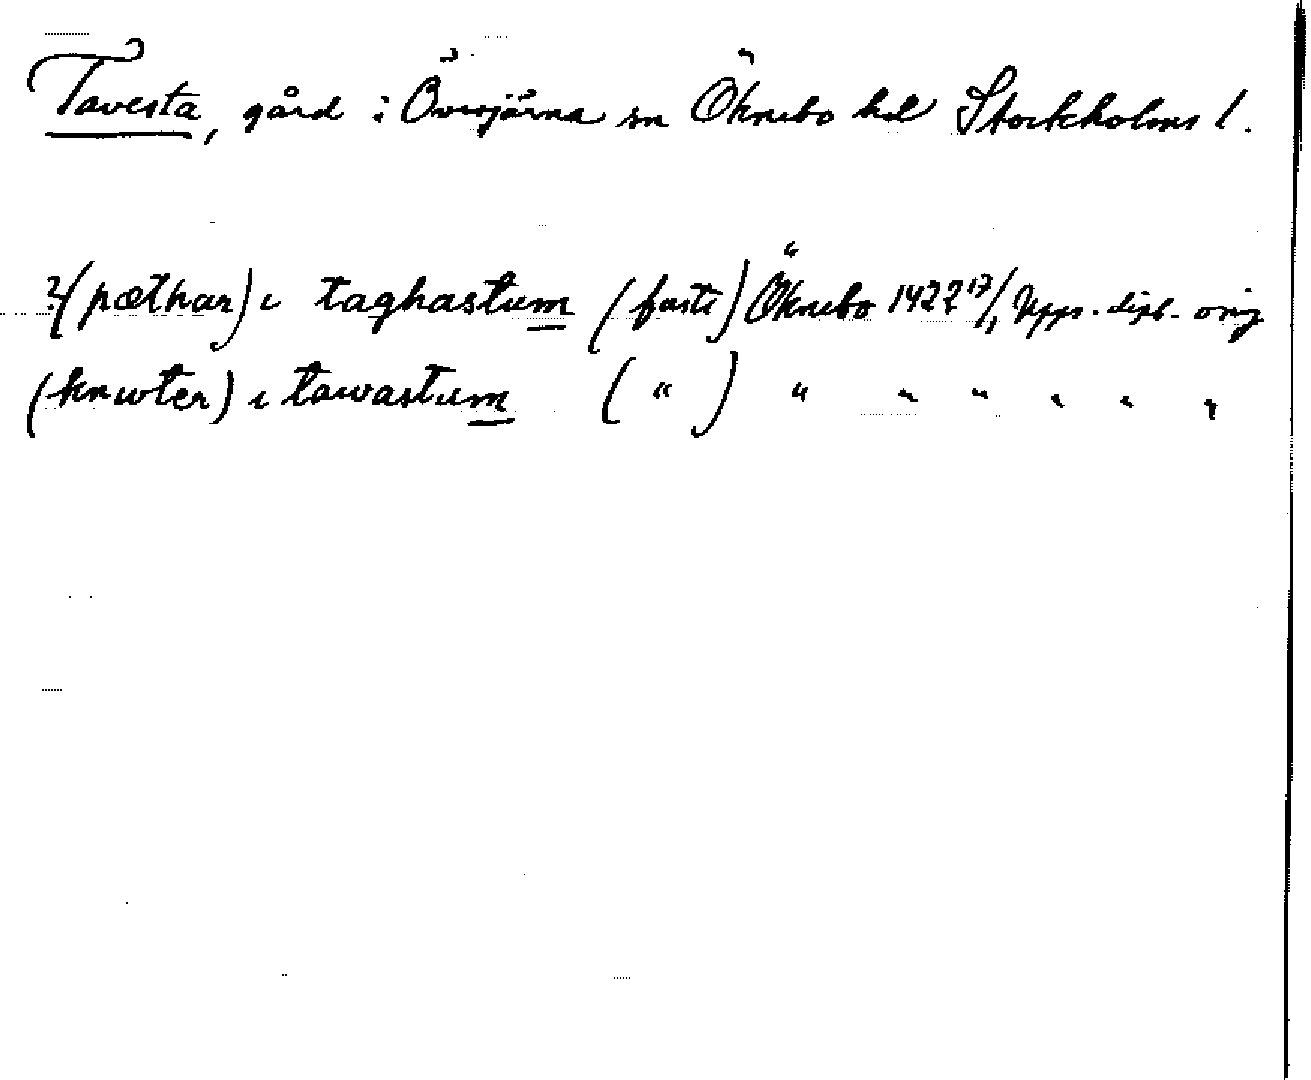 Tavesta, gård i Överjärna sn Öknebo hd Stockholms l.
?(pæthar) i taghastum (faste) Öknebo 1422 17/1 Upps. dipl. orig
(knwter) i tawastum ( " ) " " " " " "